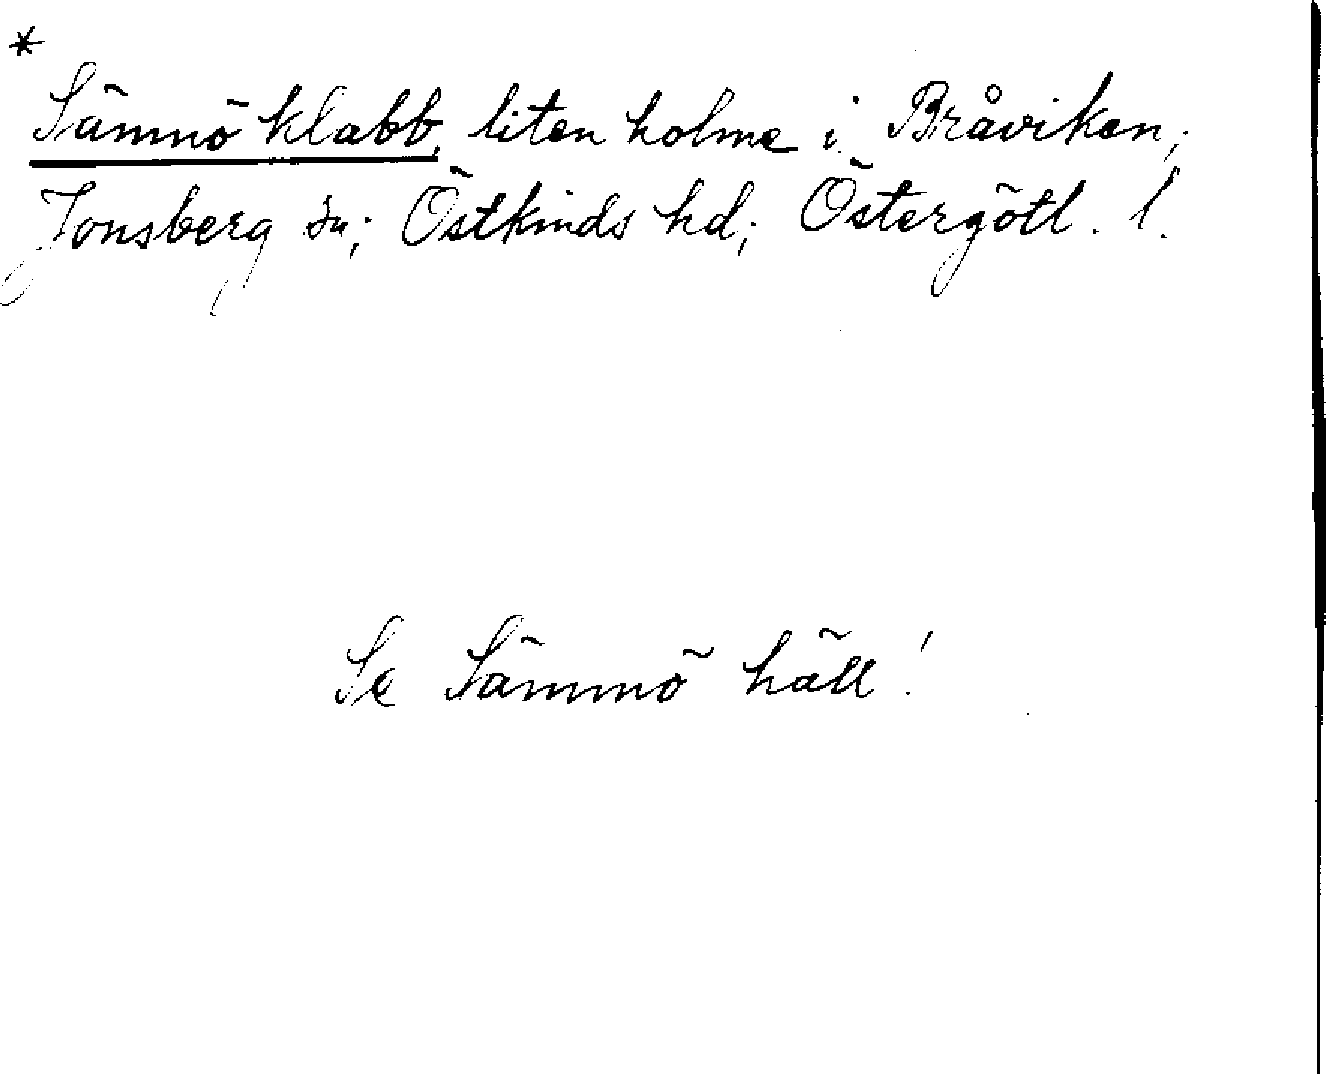 *
Sämmö klabb, liten holme i Bråviken,
Jonsberg sn; Östkinds hd; Östergötl. l.
Se Sämmö häll!